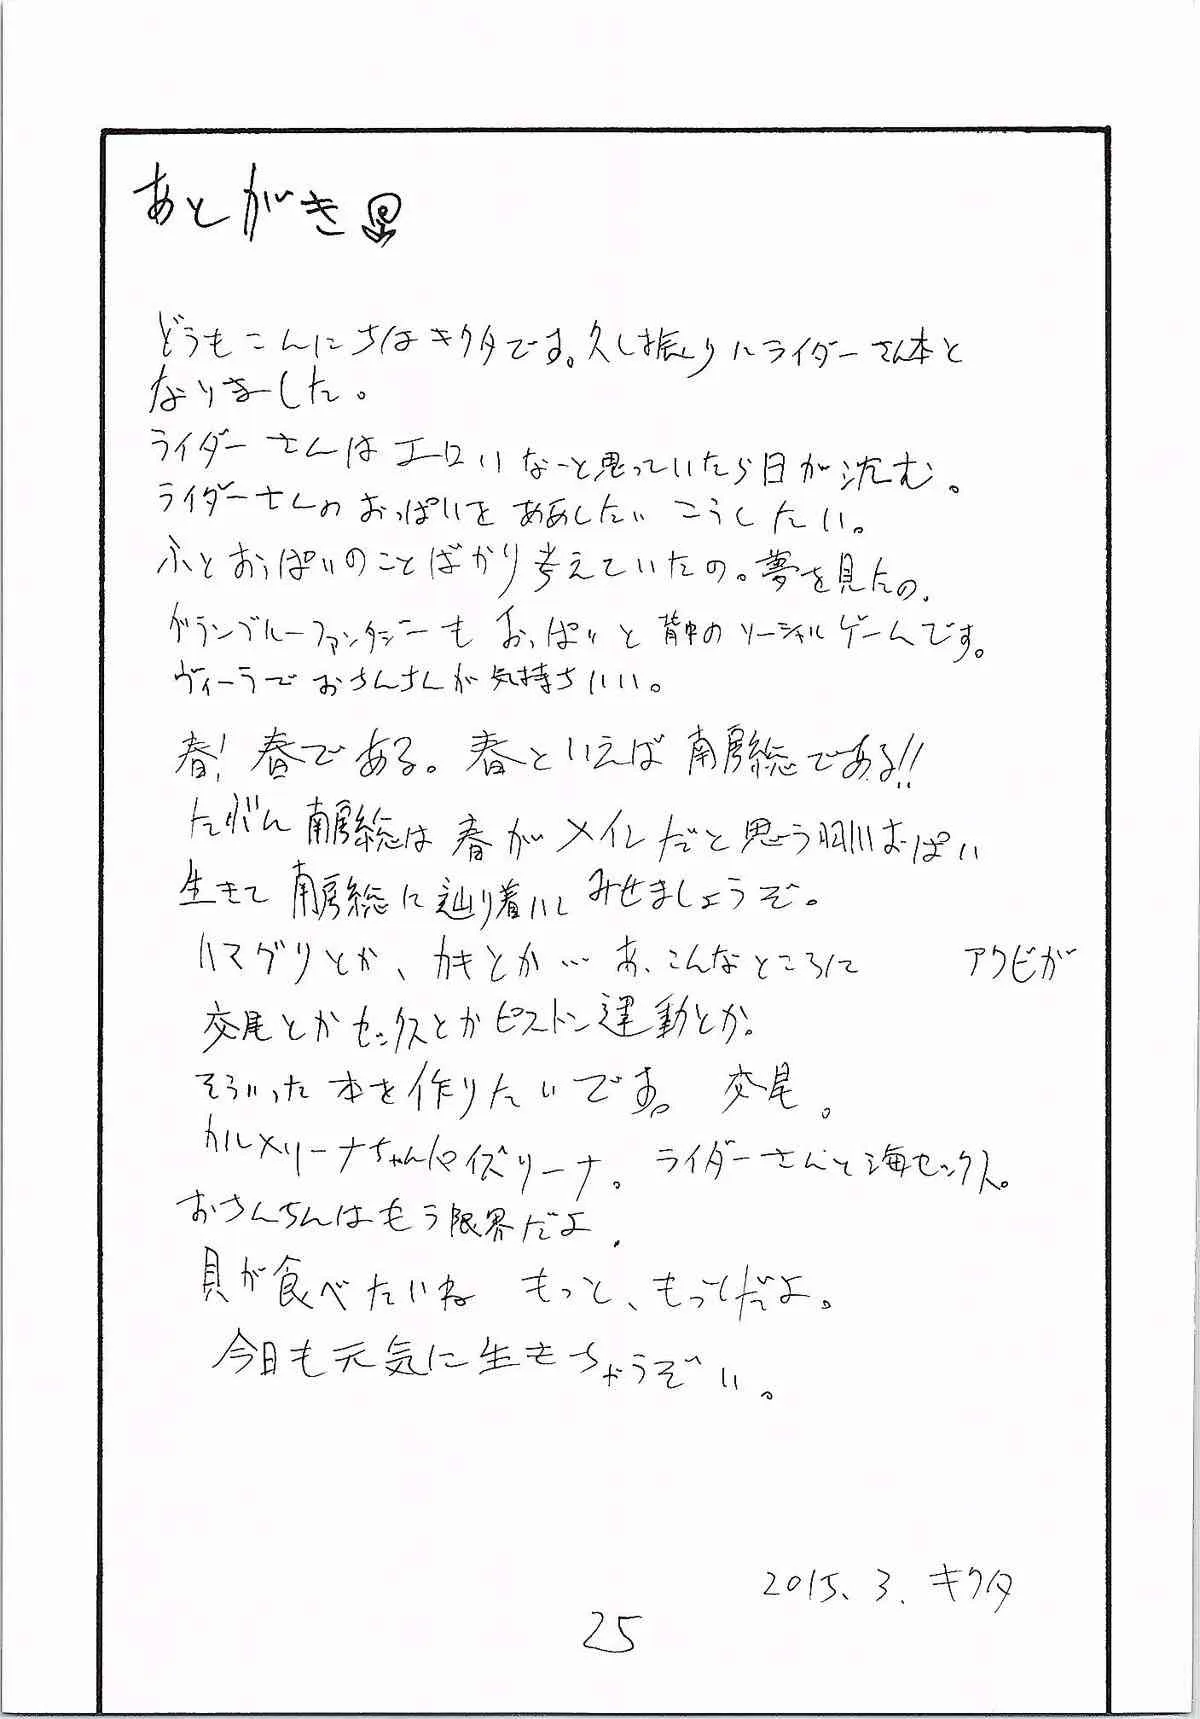 あとがき
どうもこんにちはキクタです。久し振りにライダーさん本と
なりました。
ライダーさんはエロいなーと思っていたら日が沈む。
ライダーさんのおっぱいをああしたいこうしたい。
ふとおっぱいのことばかり考えていたの。夢を見たの.
グランブルーファンタジーもおっぱいと背中のソーシャルゲームです。
ヴィーラでおちんちんが気持ちいい。
春! 春である。春といえば南房総である!!
たぶん南房総は春がメインだと思う 羽川おぱい
生きて南房総に辿り着いてみせましょうぞ。
ハマグリとか、カキとか…あ、こんなところに アワビが
交尾とかセックスとかピストン運動とか。
そういった本を作りたいです。交尾。
カルメリーナちゃんパイズリーナ。ライダーさんと海セックス。
おちんちんはもう限界だよ.
貝が食べたいね もっと、もっとだよ。
今日も元気に生きちゃうぞい。
2015.3.キクタ
25